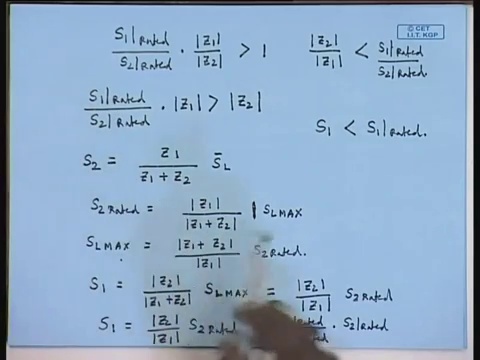 © CET
I.I.T. KGP
S1|Rated / S2|Rated · |Z1| / |Z2| > 1    |Z2| / |Z1| < S1|Rated / S2|Rated
S1|Rated / S2|Rated · |Z1| > |Z2|
S1 < S1|Rated.
S2 = Z1 / Z1 + Z2 S̄L
S2 Rated = |Z1| / |Z1 + Z2| | SLMAX
SLMAX = |Z1 + Z2| / |Z1| S2 Rated.
S1 = |Z2| / |Z1 + Z2| SLMAX = |Z2| / |Z1| S2 Rated
S1 = |Z2| / |Z1| S2 Rated · S2|Rated